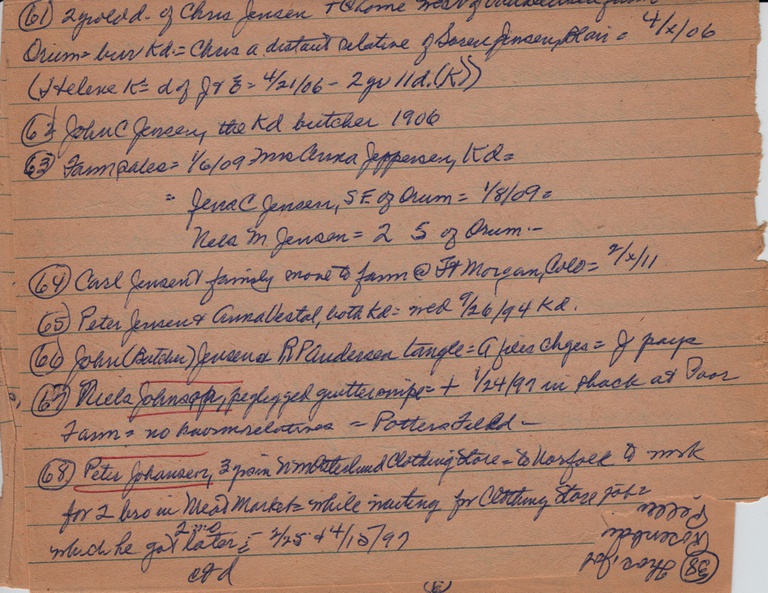 (61) 2 yr old d. of Chris Jensen + @ home west of
Orum = bur Kd. = Chris a distant relative of Soren Jensen, Blair = 4/x/06
(Helene K = d of J & E = 4/21/06 - 2 yr 11 d. (K))
(62) John C Jensen, the Kd butcher 1906
(63) Farm sales = 1/6/09 Mrs Anna Jeppersen, Kd =
= Jens C Jensen, SE of Orum = 1/8/09 =
Nels M Jensen = 2 S of Orum. -
(64) Carl Jensen & family move to farm @ Ft Morgan, Colo = 2/x/11
(65) Peter Jensen & Anna Vestal, both Kd = wed 9/26/94 Kd.
(66) John (Butcher) Jensen & R P Andersen tangle = A files chges = J pays
(67) Niels Johnson, peglegged = + 1/24/97 in shack at Poor
Farm = no known relatives = Potters Field -
(68) Peter Johansen, to Norfolk to work
for 2 bro in Meat Market = while waiting for Clothing Store job =
which he got 2 mo later = 2/25 & 4/15/97
(58)